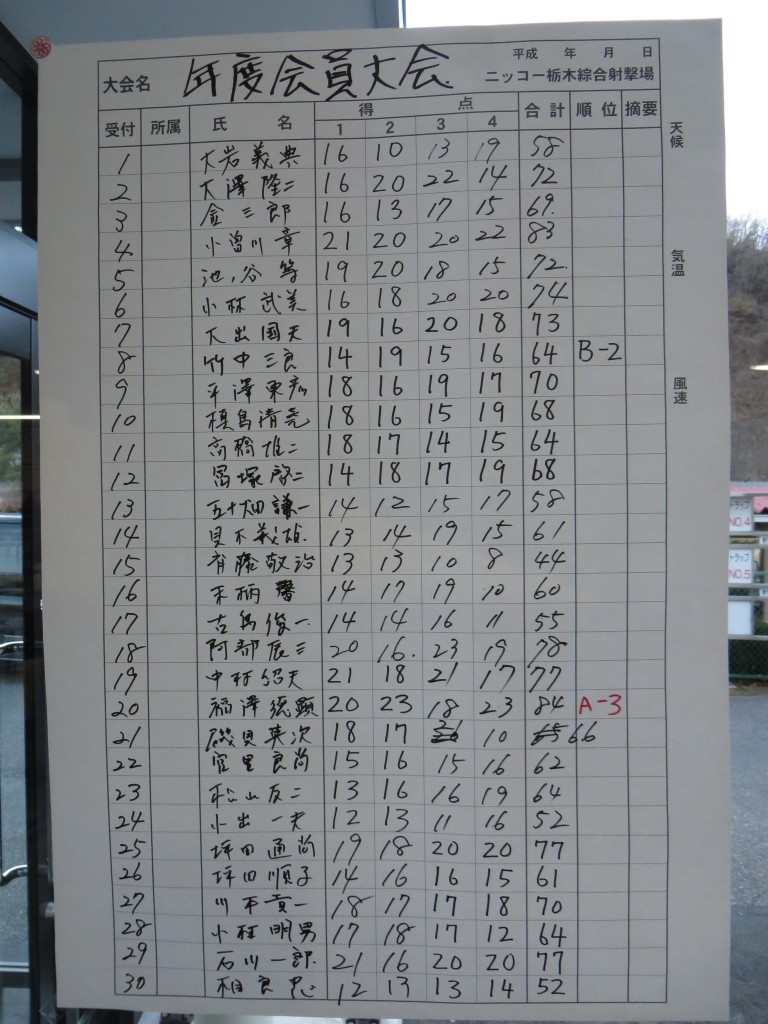 平成 年 月 日
大会名 年度会員大会 ニッコー栃木綜合射撃場
受付 所属 氏名 得点 合計 順位 摘要
1 2 3 4
1 大岩義典 16 10 13 19 58
2 大澤隆二 16 20 22 14 72
3 金三郎 16 13 17 15 69.
4 小曽川章 21 20 20 22 83
5 池ノ谷等 19 20 18 15 72.
6 小林武美 16 18 20 20 74
7 大出国夫 19 16 20 18 73
8 竹中三良 14 19 15 16 64 B-2
9 平澤東彦 18 16 19 17 70
10 槙島清亮 18 16 15 19 68
11 高橋雄二 18 17 14 15 64
12 冨塚啓二 14 18 17 19 68
13 五十畑謙一 14 12 15 17 58
14 13 14 19 15 61
15 斉藤敬治 13 13 10 8 44
16 14 17 19 10 60
17 古島俊一 14 14 16 11 55
18 阿部辰三 20 16. 23 19 78
19 中村紹夫 21 18 21 17 77
20 福澤徳顕 20 23 18 23 84 A-3
21 磯貝英次 18 17 10 66
22 宮里良尚 15 16 15 16 62
23 松山友二 13 16 16 19 64
24 小出一夫 12 13 11 16 52
25 坪田通尚 19 18 20 20 77
26 坪田順子 14 16 16 15 61
27 18 17 17 18 70
28 小林明男 17 18 17 12 64
29 石川一郎 21 16 20 20 77
30 相良忠 12 13 13 14 52
天候
気温
風速
トラップ
NO.4
トラップ
NO.5